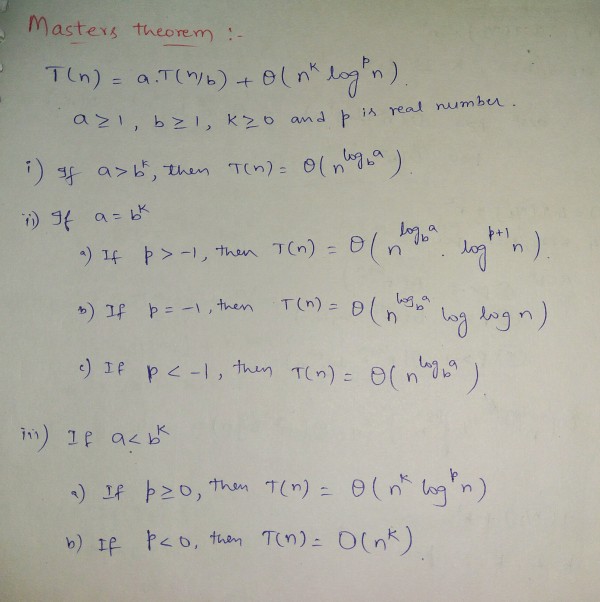 Masters theorem :-
T(n) = a.T(n/b) + θ(n^k log^p n).
a ≥ 1, b ≥ 1, k ≥ 0 and p is real number.
i) If a > b^k, then T(n) = θ(n^{log_b a}).
ii) If a = b^k
a) If p > -1, then T(n) = θ(n^{log_b a} . log^{p+1} n).
b) If p = -1, then T(n) = θ(n^{log_b a} log log n)
c) If p < -1, then T(n) = θ(n^{log_b a})
iii) If a < b^k
a) If p ≥ 0, then T(n) = θ(n^k log^p n)
b) If p < 0, then T(n) = O(n^k).